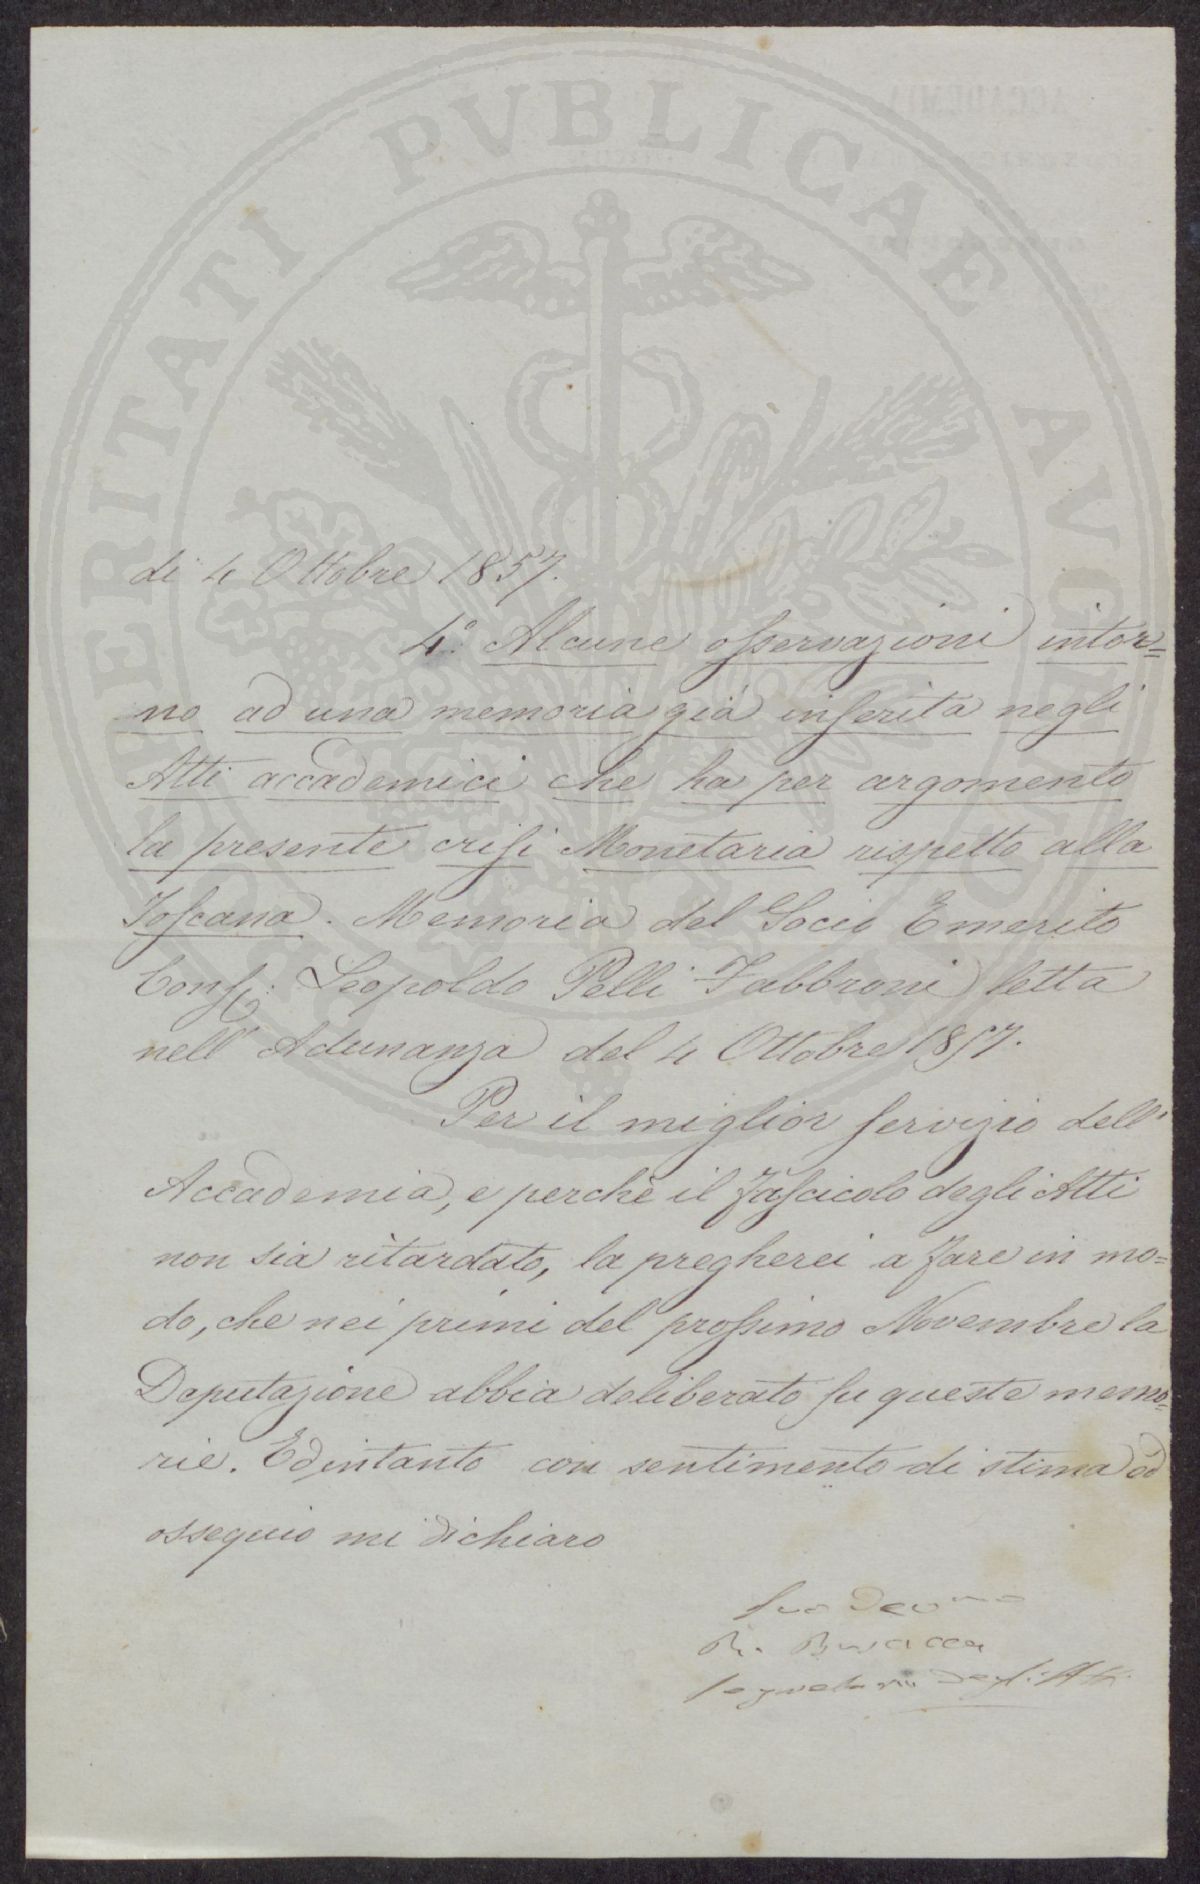 PROSPERITATI PVBLICAE AVGENDAE
di 4 Ottobre 1857.
4.° Alcune osservazioni intor=
no ad una memoria già inserita negli
Atti accademici che ha per argomento
la presente crisi Monetaria rispetto alla
Toscana. Memoria del Socio Emerito
Cons: Leopoldo Pelli Fabbroni letta
nell' Adunanza del 4 Ottobre 1857.
Per il miglior servizio dell'
Accademia, e perchè il fascicolo degli Atti
non sia ritardato, la pregherei a fare in mo=
do, che nei primi del prossimo Novembre la
Deputazione abbia deliberato su queste memo=
rie. Ed intanto con sentimento di stima ed
ossequio mi dichiaro
Suo Dev.mo
R. Busacca
Segretario degli Atti